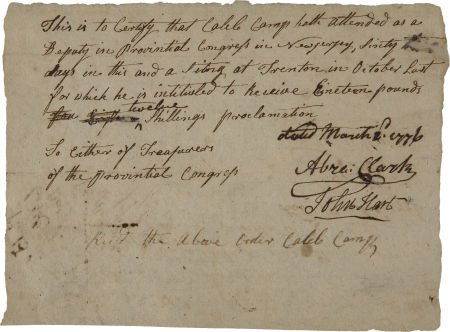 This is to Certify that Caleb Camp hath attended as a
Deputy in Provincial Congress in New Jersey, Sixty
days in this and a Siting at Trenton in October Last
for which he is intituled to Receive Eineteen pounds
twelve
Shillings proclamation
dated March 2d. 1776
To Either of Treasurers
of the Provintial Congress
Abra: Clark
John Hart
Recd the above order Caleb Camp